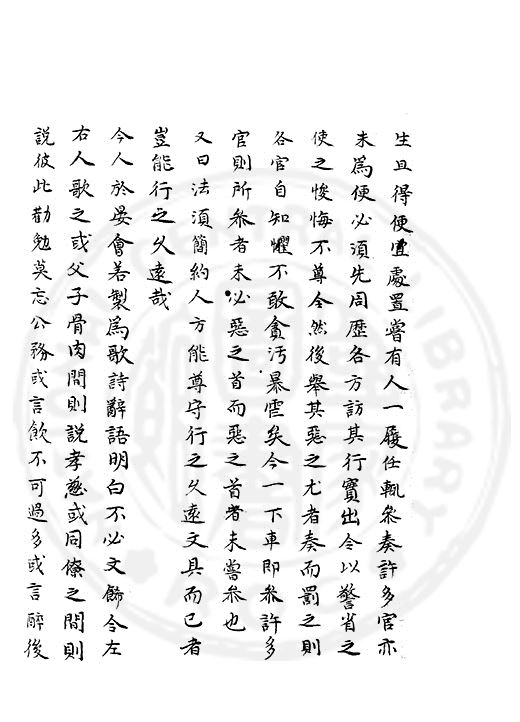 生且得便宜處置嘗有人一履任輒叅奏許多官亦
未為便必須先周歷各方訪其行實出令以警省之
使之悛悔不尊令然後舉其惡之尤者奏而罰之則
各官自知懼不敢貪污暴虐矣今一下車即叅許多
官則所叅者未必惡之首而惡之首者未嘗叅也
又曰法須簡約人方能尊守行之久遠文具而已者
豈能行之久遠哉
今人於晏會若製為歌詩辭語明白不必文飾令左
右人歌之或父子骨肉間則說孝慈或同僚之間則
說彼此勸勉莫忘公務或言飲不可過多或言醉後